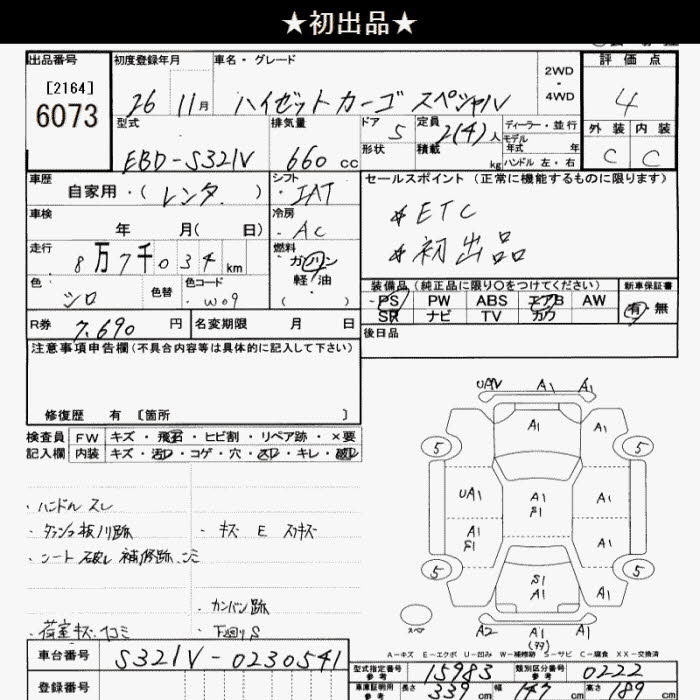 ★初出品★
出品番号 初度登録年月 車名・グレード 2WD・4WD 評価点
[2164]
6073
26 11月 ハイゼットカーゴ スペシャル 4
型式 排気量 ドア 5 定員 2(4)人 ディーラー・並行 外装 内装
形状 積載 kg モデル年式 年 ハンドル 左・右
EBD-S321V 660 cc C C
車歴 シフト セールスポイント (正常に機能するものに限ります)
自家用・(レンタ) IAT
*ETC
車検 冷房
年 月( 日) AC
*初出品
走行 燃料
8万7千034 km ガソリン 軽油 ( )
色 色替 色コード 装備品(純正品に限り○をつけてください) 新車保証書
シロ W09
PS PW ABS エアB AW 有 無
SR ナビ TV カワ
R券 7,690 円 名変期限 月 日
後日品
注意事項申告欄(不具合内容等は具体的に記入して下さい)
修復歴 有 [箇所 ]
検査員 FW キズ・飛石・ヒビ割・リペア跡・×要
記入欄 内装 キズ・汚れ・コゲ・穴・スレ・キレ・破れ
・ハンドル スレ
・ キズ E スリキズ
・シート 破レ 補修跡
・カンバン跡
・荷室キズ
・下廻りS
A1 A1
A1
5 5
UA1 A1 A1
A1 A1
5 5
S1
A1 A1
スペア A2 A1
A-キズ E-エクボ U-凹み W-補修跡 S-サビ C-腐食 XX-交換済
車台番号 S321V-0230541
型式指定番号 参考 15983 類別区分番号 参考 0222
登録番号
車庫証明用 参考 長さ 339 cm 幅 147 cm 高さ 189 cm